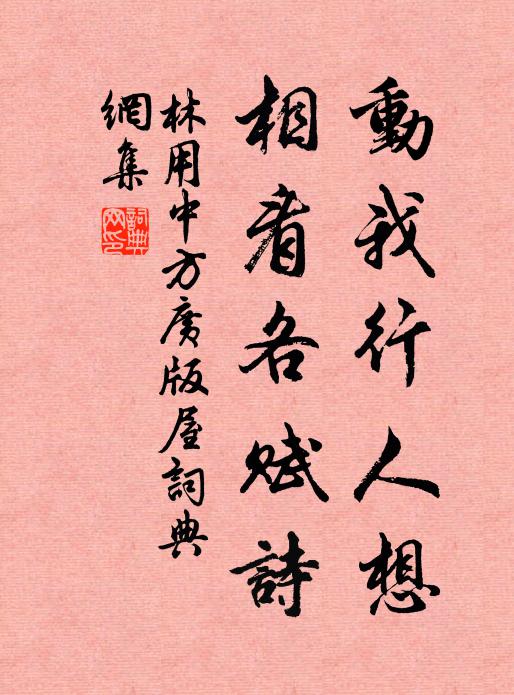 動我行人想
相看各賦詩
林用中方廣版屋詞典
網集
詞典網印